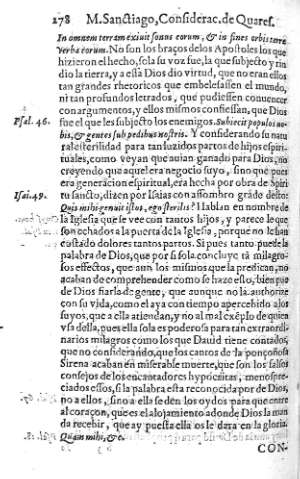 278 M. Sanctiago, Considerac. de Quares.
In omnem terram exiuit sonus eorum, & in fines orbis terræ
Verba eorum. No son los braços delos Apostoles los que
hizieron el hecho, sola su voz fue, la que subjecto y rin
dio la tierra, y a esta Dios dio virtud, que no eran ellos
tan grandes rhetoricos que embelesassen el mundo,
ni tan profundos letrados, que pudiessen conuencer
con argumentos, y ellos mismos confiessan, que Dios
Psal. 46.
fue el que les subjecto los enemigos. Subiecit populos no
bis, & gentes sub pedibus nostris. Y considerando su natu
ral esterilidad para tan luzidos partos de hijos espiri-
tuales, como veyan que auian ganado para Dios, no
creyendo que aquel era negocio suyo, sino que pues
era generacion espiritual, era hecha por obra de Spiri
Isai. 49.
tu sancto, dizen por Isaias con assombro grãde desto:
Quis mihi genuit istos, ego sterilis? Hablan en nombre de
la Iglesia que se vee con tantos hijos, y parece le que
son echados a la puerta de la Iglesia, porque no le han
costado dolores tantos partos. Si pues tanto puede la
palabra de Dios, que por si sola concluye tã milagro-
sos effectos, que aun los mismos que la predican, no
acaban de comprehender como se haze esso, bien pue
de Dios fiarla de gente, que aunque no la authorize
con su vida, como el aya con tiempo apercebido a los
suyos, que a ella atiendan, y no al mal exẽplo de quien
vsa della, pues ella sola es poderosa para tan extraordi-
narios milagros como los que Dauid tiene contados,
que no considerando, que los cantos de la ponçoñosa
Sirena acaban en miserable muerte, que son los falsos
consejos de los encantadores hypocritas, menospre-
ciados essos, si la palabra esta reconocida por de Dios,
no a ellos, sino a ella se den los oydos para que entre
al coraçon, que es el alojamiento adonde Dios la man
da recebir, que ay puesta ella os le dara en la gloria.
Quam mihi, &c.
CON-